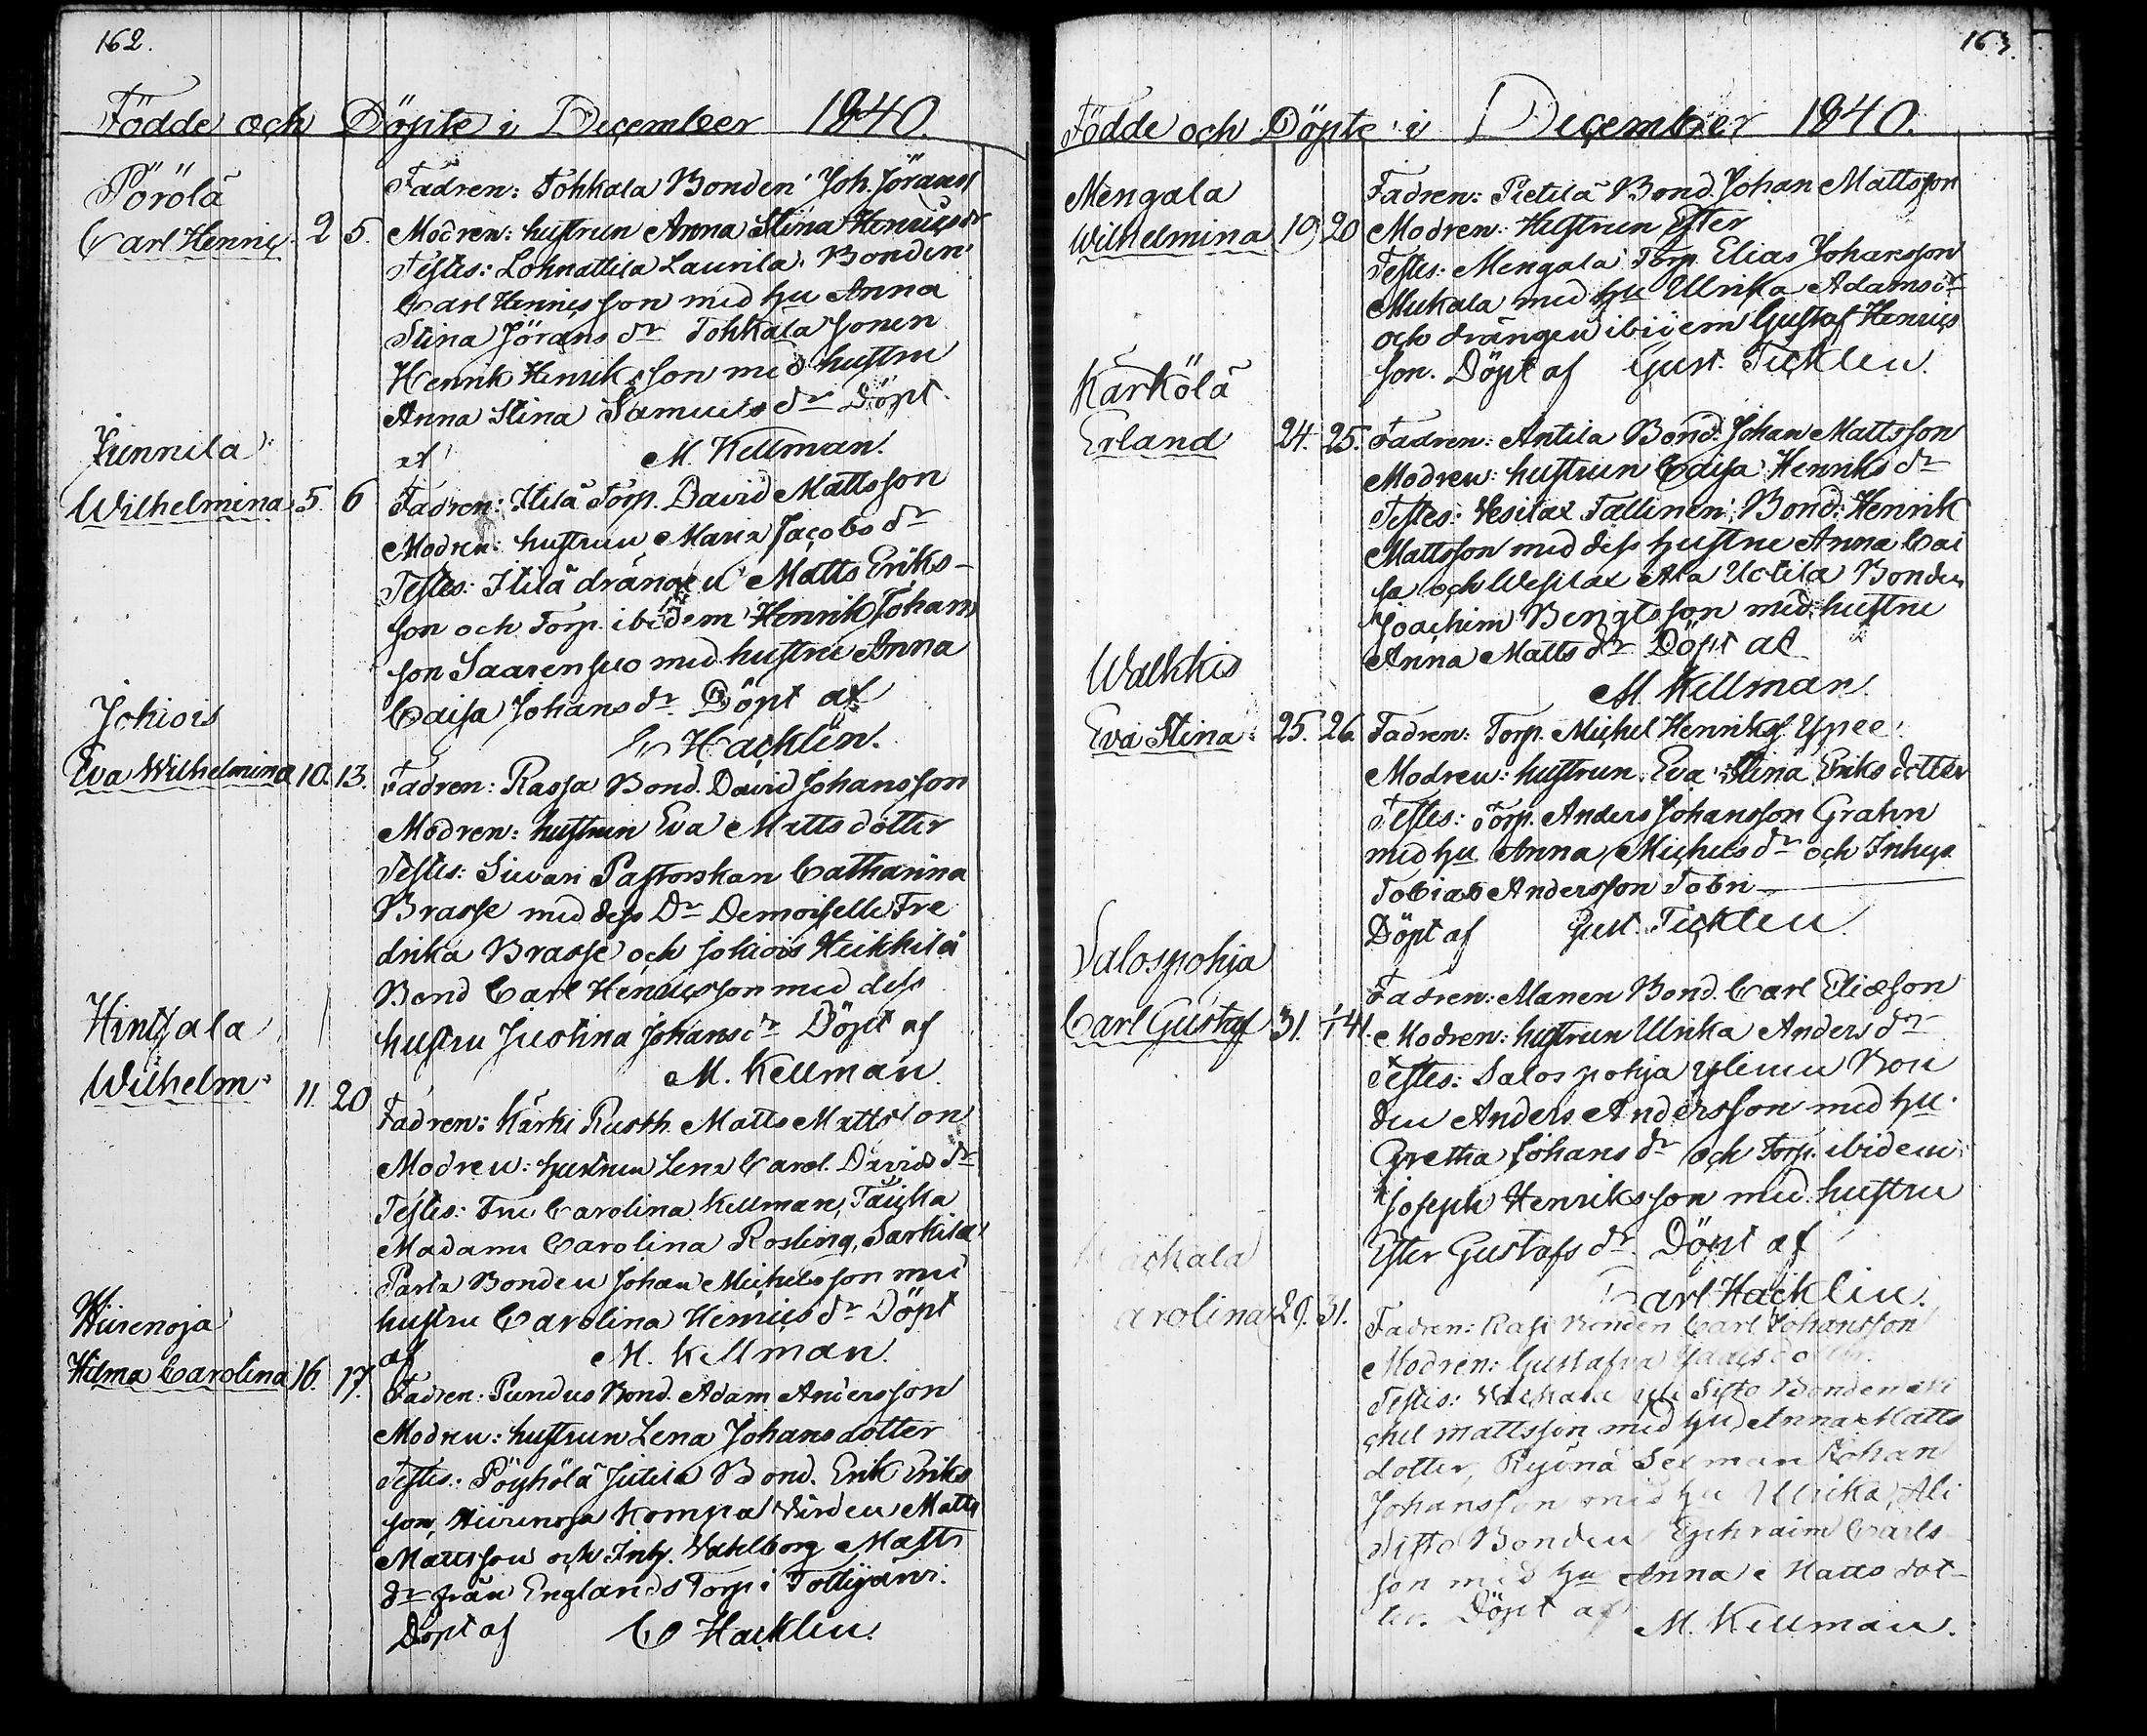 162.
Födde och Döpte i December 1840.
Pörölä
Carl Henric 2 5.
Fadren: Tohkala Bonden Joh. Jöranss
Modren: hustrun Anna Stina Henricsdr
Testes: Lohnattila Laurila Bonden
Carl Henricsson med hu Anna
Stina Jörans dr Tohkala Sonen
Henrik Henriksson med hustru
Anna Stina Samuels dr Döpt
af M. Kellman.
Junnila
Wilhelmina 5. 6
Fadren: Itilä Torp. David Mattsson
Modren: hustrun Maria Jacobs dr
Testes: Itilä drängen Matts Eriks-
son och Torp. ibidem Henrik Johans
son Saarensuo med hustru Anna
Caisa Johans dr. Döpt af
C Hacklin.
Jokiois
Eva Wilhelmina 10. 13.
Fadren: Rassa Bond. David Johansson
Modren: hustrun Eva Matts dotter
Testes: Siuvari Pastorskan Catharina
Brasse med dess Dr Demoiselle Fre
drika Brasse och Jokiois Heikkilä
Bond Carl Henricsson med dess
hustru Justina Johans dr Döpt af
M. Kellman.
Hintsala
Wilhelm 11. 20
Fadren: Kärki Rusth. Matts Mattsson
Modren: hustrun Lena Carol. Davids dr
Testes: Fru Carolina Kellman, Tauika
Madame Carolina Rosling, Sarkila
Parta Bonden Johan Michelsson med
hustru Carolina Henrics dr Döpt
af M. Kellman.
Hiirenoja
Hilma Carolina 16. 17.
Fadren: Pundus Bond. Adam Andersson
Modren: hustrun Lena Johans dotter
Testes: Pöyhölä Jutila Bond. Erik Eriks
son, Hiirenoja Kompa Värden Matts
Mattsson och Inh. Wahlborg Matts
dr från Englands Torp i Tottijärvi.
Döpt af C Hacklin.
163.
Födde och Döpte i December 1840.
Mengala
Wilhelmina 19 20
Fadren: Pietilä Bond. Johan Mattsson
Modren: Hustrun Ester
Testes: Mengala Torp. Elias Johansson
Mukala med hu Ulrika Adams dr
och drängen ibidem Gustaf Henrics
son. Döpt af Gust. Ticklen.
Karkölä
Erland 24. 25.
Fadren: Antila Bond. Johan Mattsson
Modren: hustrun Caisa Henriks dr
Testes: Vesilax Tallinen Bond: Henrik
Mattsson med dess hustru Anna Cai
sa och Wesilax Ala Uotila Bonden
Joachim Bengtsson med hustru
Anna Matts dr Döpt af
M. Kellman.
Walkkis
Eva Stina 25. 26.
Fadren: Torp. Michel Henrikss Ypee.
Modren: hustrun Eva Stina Eriks dotter
Testes: Torp. Anders Johansson Grahn
med hu Anna Michels dr och Inhys
Tobias Andersson Tobri
Döpt af Gust. Ticklen
Salospohja
Carl Gustaf 31. 1/1 41.
Fadren: Manen Bond. Carl Eliæson
Modren: hustrun Ulrika Anders dr
Testes: Salospohja Ylinen Bon
den Anders Andersson med hu.
Gretha Johans dr och Torp. ibidem
Joseph Henriksson med hustru
Ester Gustafs dr. Döpt af
Carl Hacklin.
ackala
arolina 29. 31.
Fadren: Rasi Bonden Carl Johansson
Modren: Gustafva
Testes: Vackala Yli Sifto Bonden Mi
chel Mattsson med hu Anna Matts
dotter, Ryönä Sexman Johan
Johansson med hu Ulrika, Ali
Sifto Bonden Ephraim Carls
son med hu Anna Matts dot-
ter. Döpt af M. Kellman.